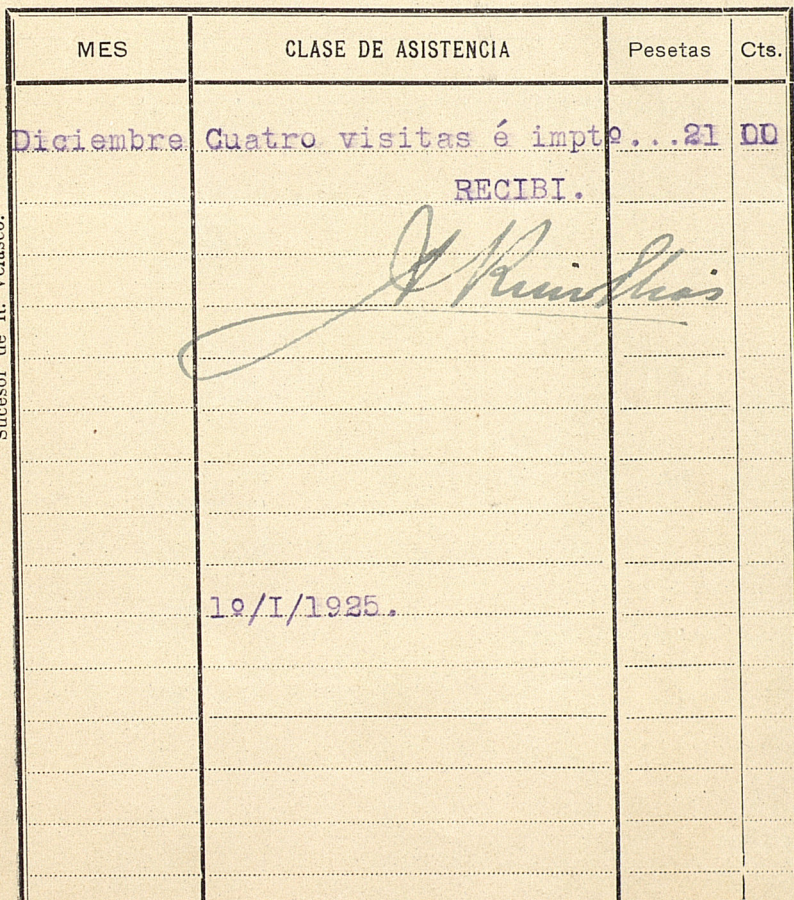 MES CLASE DE ASISTENCIA Pesetas Cts.
Diciembre Cuatro visitas é imptº...21 00
RECIBI.
1º/I/1925.
Sucesor de R. Velasco.